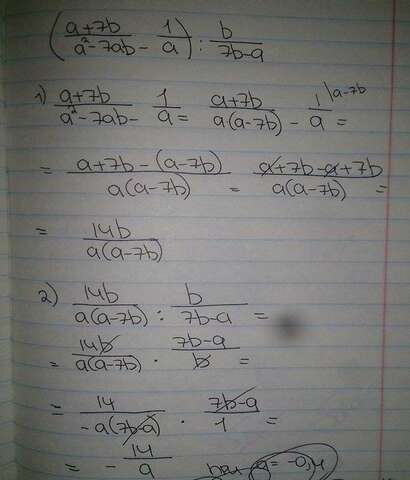 ((a+7b)/(a²-7ab) - 1/a) : b/(7b-a)
1) (a+7b)/(a²-7ab) - 1/a = (a+7b)/(a(a-7b)) - 1/a |a-7b =
= (a+7b-(a-7b))/(a(a-7b)) = (a+7b-a+7b)/(a(a-7b)) =
= 14b/(a(a-7b))
2) 14b/(a(a-7b)) : b/(7b-a) =
= 14b/(a(a-7b)) · (7b-a)/b =
= 14/(-a(7b-a)) · (7b-a)/1 =
= - 14/a